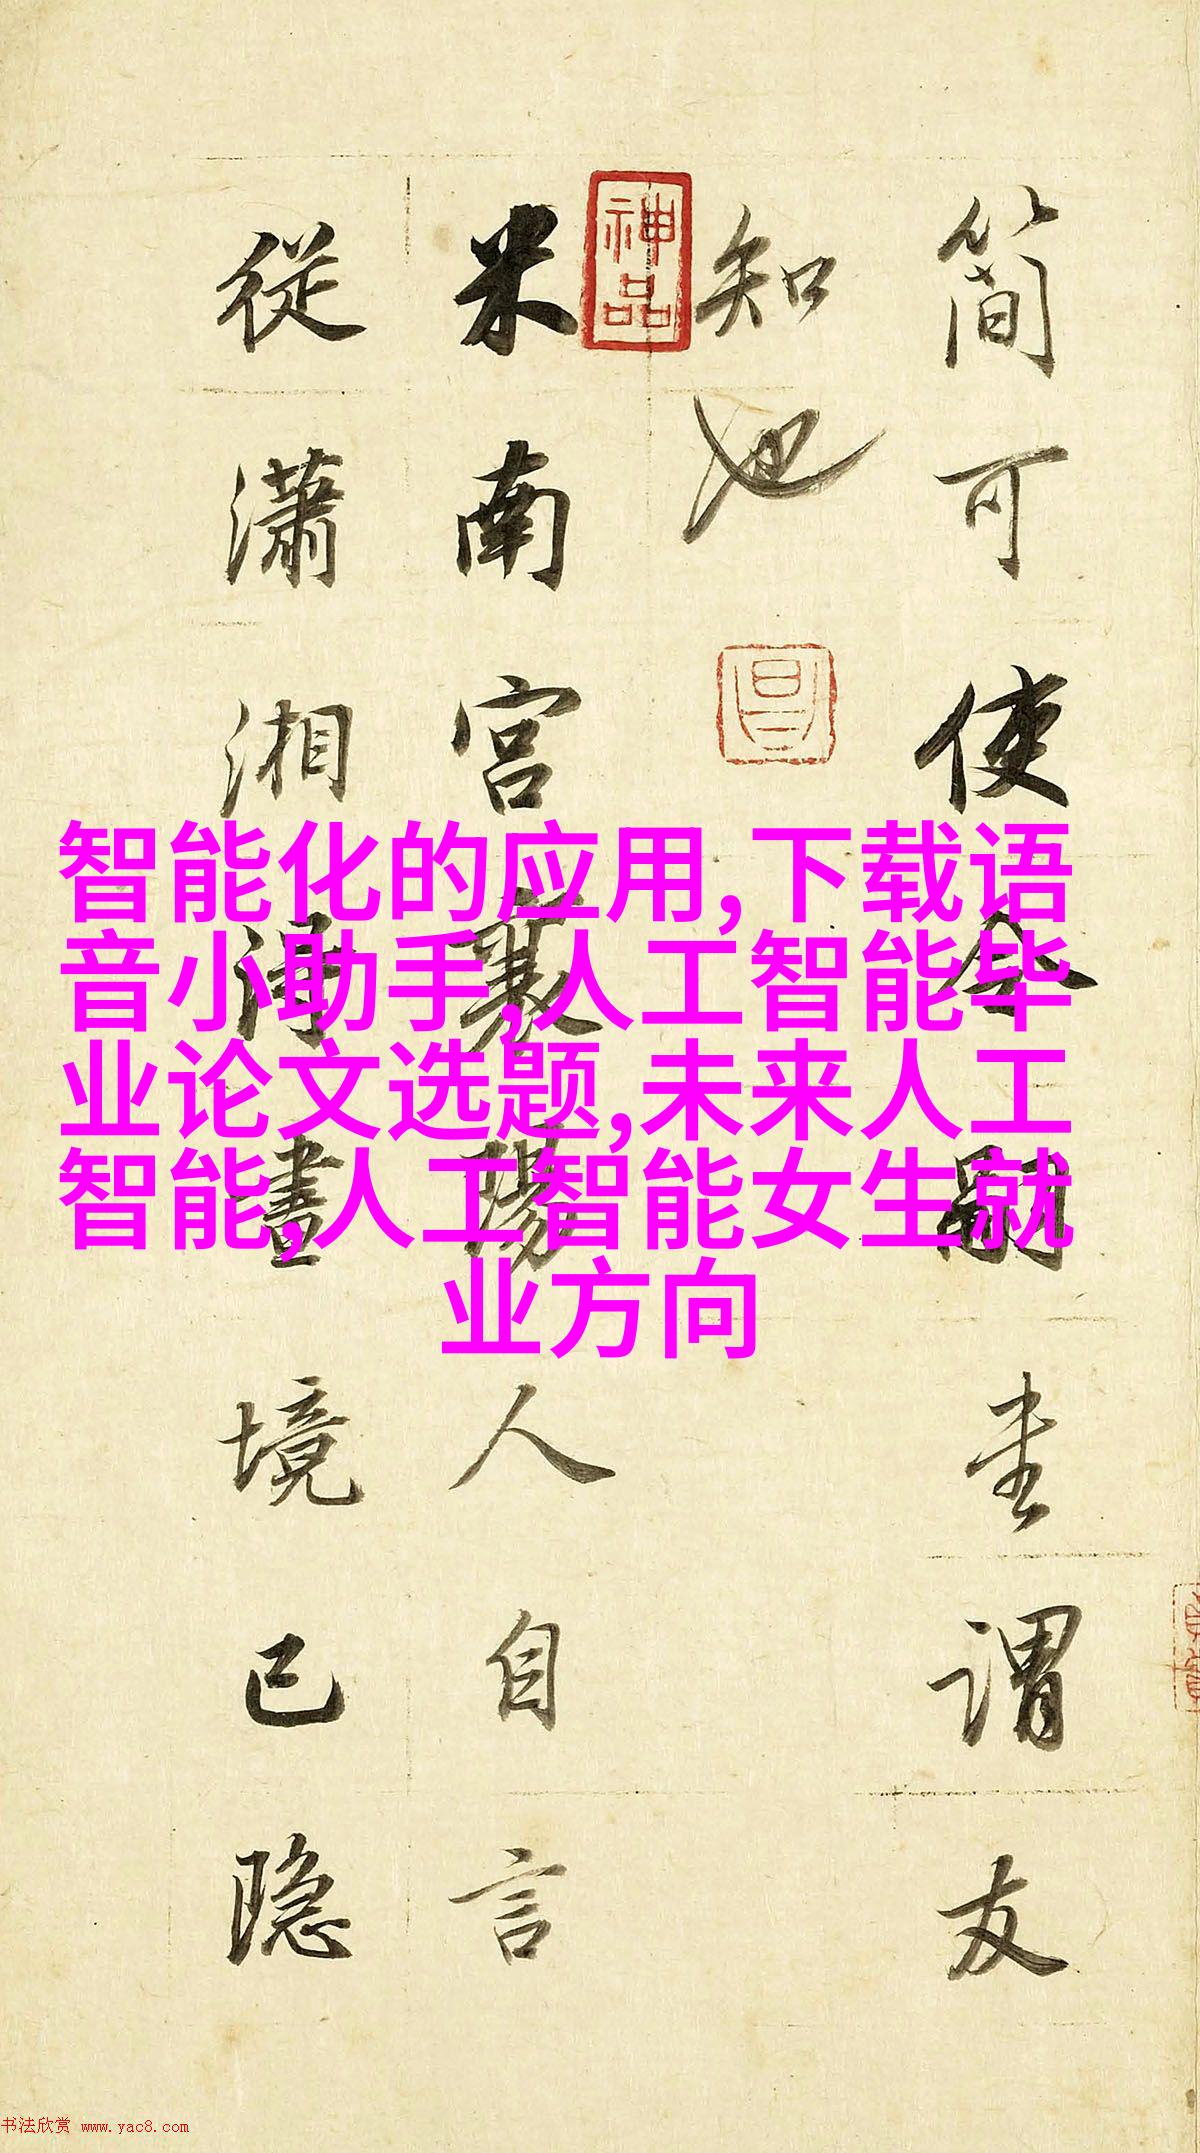 简可使令嗣谓友
知也
神品
米南宮襄陽人自言
從瀟湘得畫境已隱
智能化的应用,下载语
音小助手,人工智能毕
业论文选题,未来人工
智能,人工智能女生就
业方向
书法欣赏 www.yac8.com